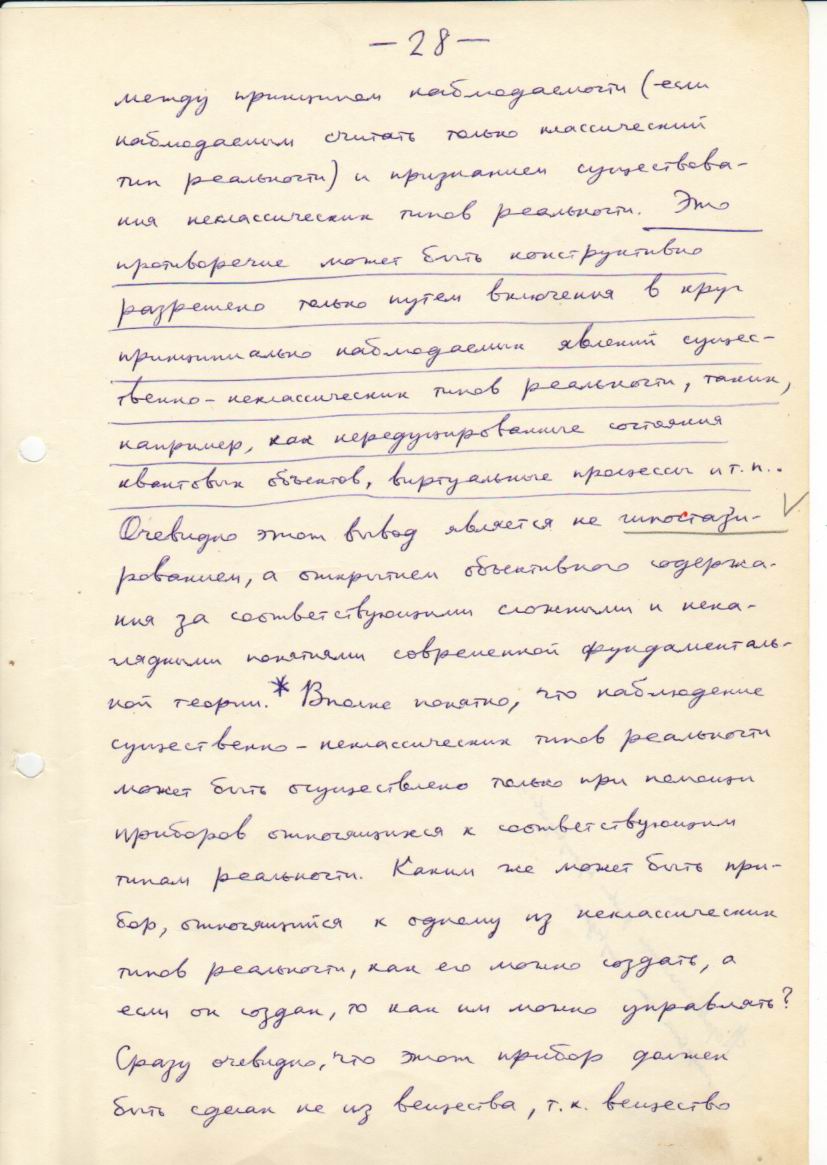 — 28 —
между принципом наблюдаемости (если
наблюдаемым считать только классический
тип реальности) и признанием существова-
ния неклассических типов реальности. Это
противоречие может быть конструктивно
разрешено только путем включения в круг
принципиально наблюдаемых явлений сущес-
твенно-неклассических типов реальности, таких,
например, как нередуцированные состояния
квантовых объектов, виртуальные процессы и т.п..
Очевидно этот вывод является не гипостази-
рованием, а открытием объективного содержа-
ния за соответствующими сложными и нена-
глядными понятиями современной фундаменталь-
ной теории.* Вполне понятно, что наблюдение
существенно-неклассических типов реальности
может быть осуществлено только при помощи
приборов относящихся к соответствующим
типам реальности. Каким же может быть при-
бор, относящийся к одному из неклассических
типов реальности, как его можно создать, а
если он создан, то как им можно управлять?
Сразу очевидно, что этот прибор должен
быть сделан не из вещества, т.к. вещество